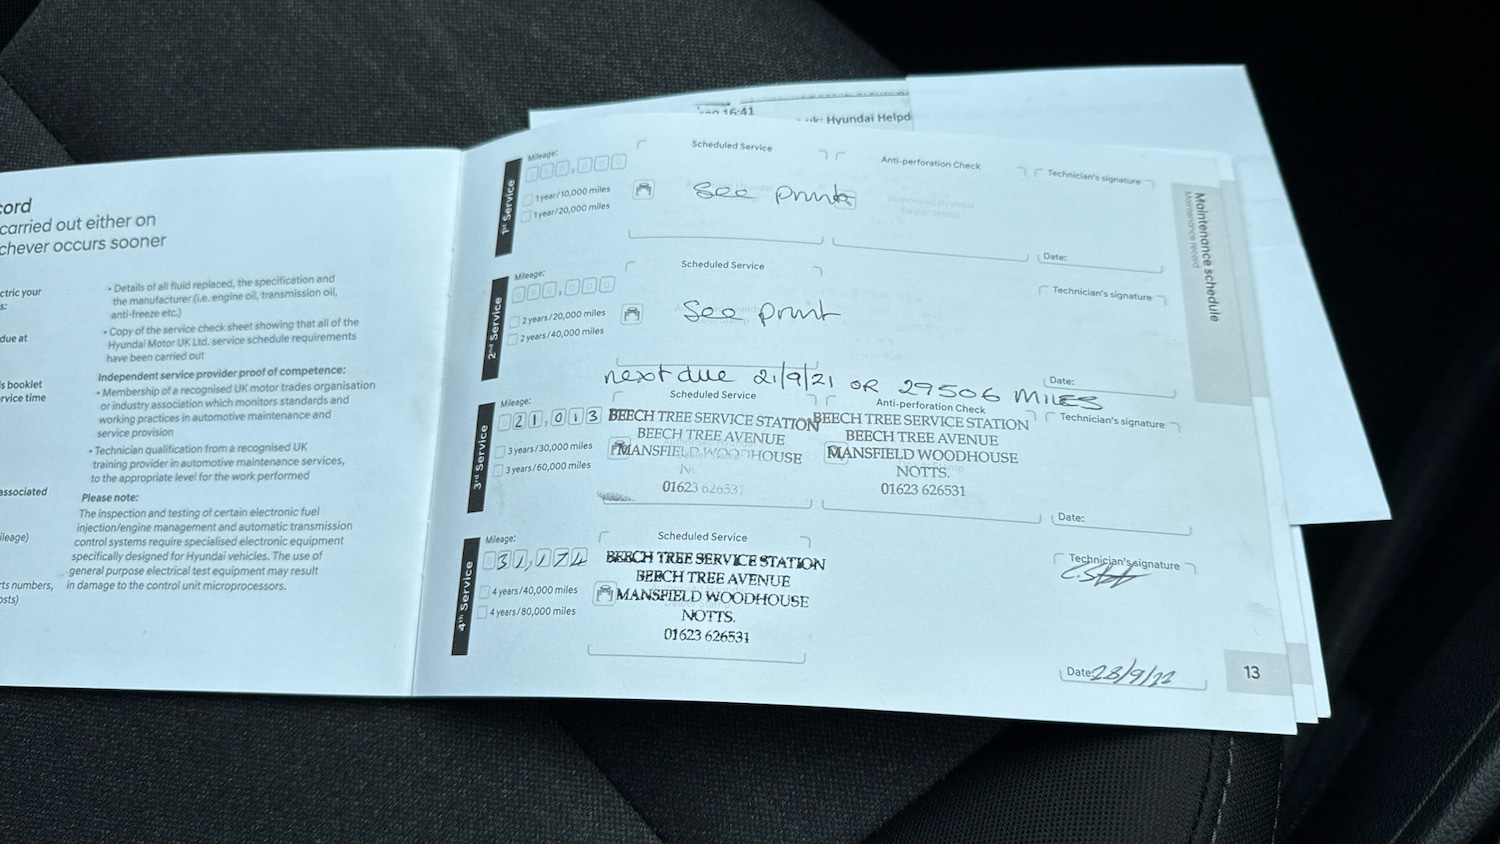 16:41
uk: Hyundai Helpd
cord
carried out either on
chever occurs sooner
ctric your
s:
due at
is booklet
rvice time
associated
ileage)
rts numbers,
osts)
• Details of all fluid replaced, the specification and
the manufacturer (i.e. engine oil, transmission oil,
anti-freeze etc.)
• Copy of the service check sheet showing that all of the
Hyundai Motor UK Ltd. service schedule requirements
have been carried out
Independent service provider proof of competence:
• Membership of a recognised UK motor trades organisation
or industry association which monitors standards and
working practices in automotive maintenance and
service provision
• Technician qualification from a recognised UK
training provider in automotive maintenance services,
to the appropriate level for the work performed
Please note:
The inspection and testing of certain electronic fuel
injection/engine management and automatic transmission
control systems require specialised electronic equipment
specifically designed for Hyundai vehicles. The use of
general purpose electrical test equipment may result
in damage to the control unit microprocessors.
Maintenance schedule
Maintenance record
1st Service
Mileage:
000,000
1 year/10,000 miles
1 year/20,000 miles
Scheduled Service
See prints
Anti-perforation Check
Authorised Hyundai
Dealer Stamp
Technician's signature
Date:
2nd Service
Mileage:
000,000
2 years/20,000 miles
2 years/40,000 miles
Scheduled Service
See print
Technician's signature
Date:
next due 21/9/21 OR 29506 MILES
3rd Service
Mileage:
21,013
3 years/30,000 miles
3 years/60,000 miles
Scheduled Service
BEECH TREE SERVICE STATION
BEECH TREE AVENUE
MANSFIELD WOODHOUSE
01623 626531
Anti-perforation Check
BEECH TREE SERVICE STATION
BEECH TREE AVENUE
MANSFIELD WOODHOUSE
NOTTS.
01623 626531
Technician's signature
Date:
4th Service
Mileage:
31,174
4 years/40,000 miles
4 years/80,000 miles
Scheduled Service
BEECH TREE SERVICE STATION
BEECH TREE AVENUE
MANSFIELD WOODHOUSE
NOTTS.
01623 626531
Technician's signature
Date: 28/9/22
13